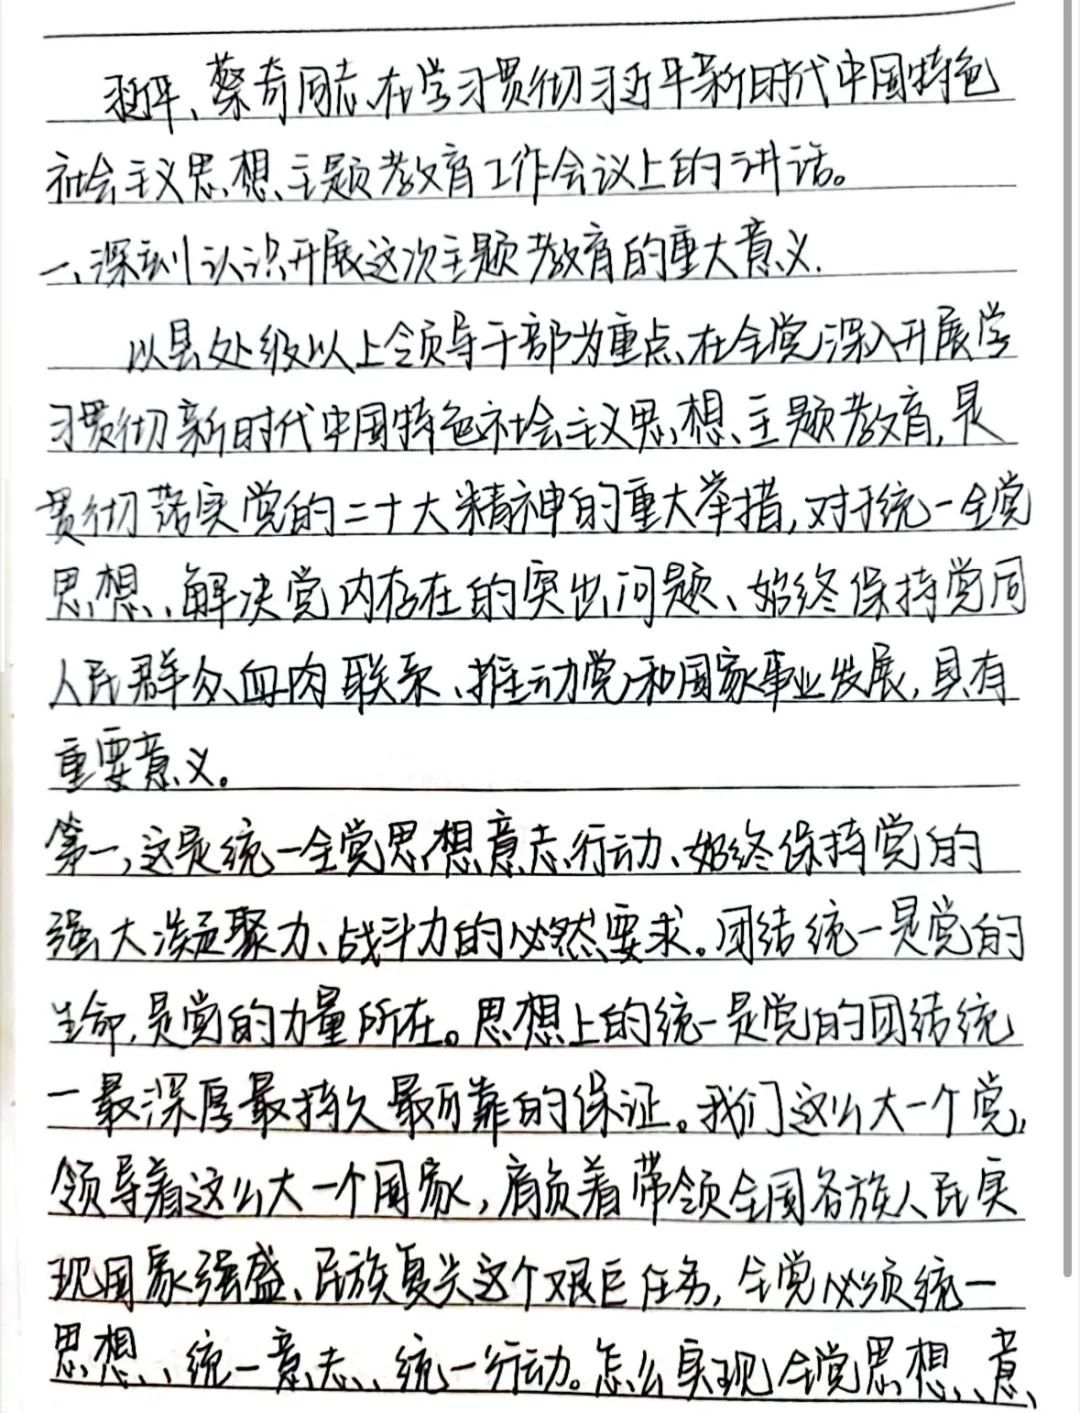 习近平、蔡奇同志在学习贯彻习近平新时代中国特色
社会主义思想主题教育工作会议上的讲话。
一、深刻认识开展这次主题教育的重大意义.
以县处级以上领导干部为重点在全党深入开展学
习贯彻新时代中国特色社会主义思想主题教育,是
贯彻落实党的二十大精神的重大举措,对于统一全党
思想、解决党内存在的突出问题、始终保持党同
人民群众血肉联系、推动党和国家事业发展,具有
重要意义。
第一,这是统一全党思想意志行动、始终保持党的
强大凝聚力、战斗力的必然要求。团结统一是党的
生命,是党的力量所在。思想上的统一是党的团结统
一最深厚最持久最可靠的保证。我们这么大一个党,
领导着这么大一个国家,肩负着带领全国各族人民实
现国家强盛、民族复兴这个艰巨任务,全党必须统一
思想、统一意志、统一行动。怎么实现全党思想、意